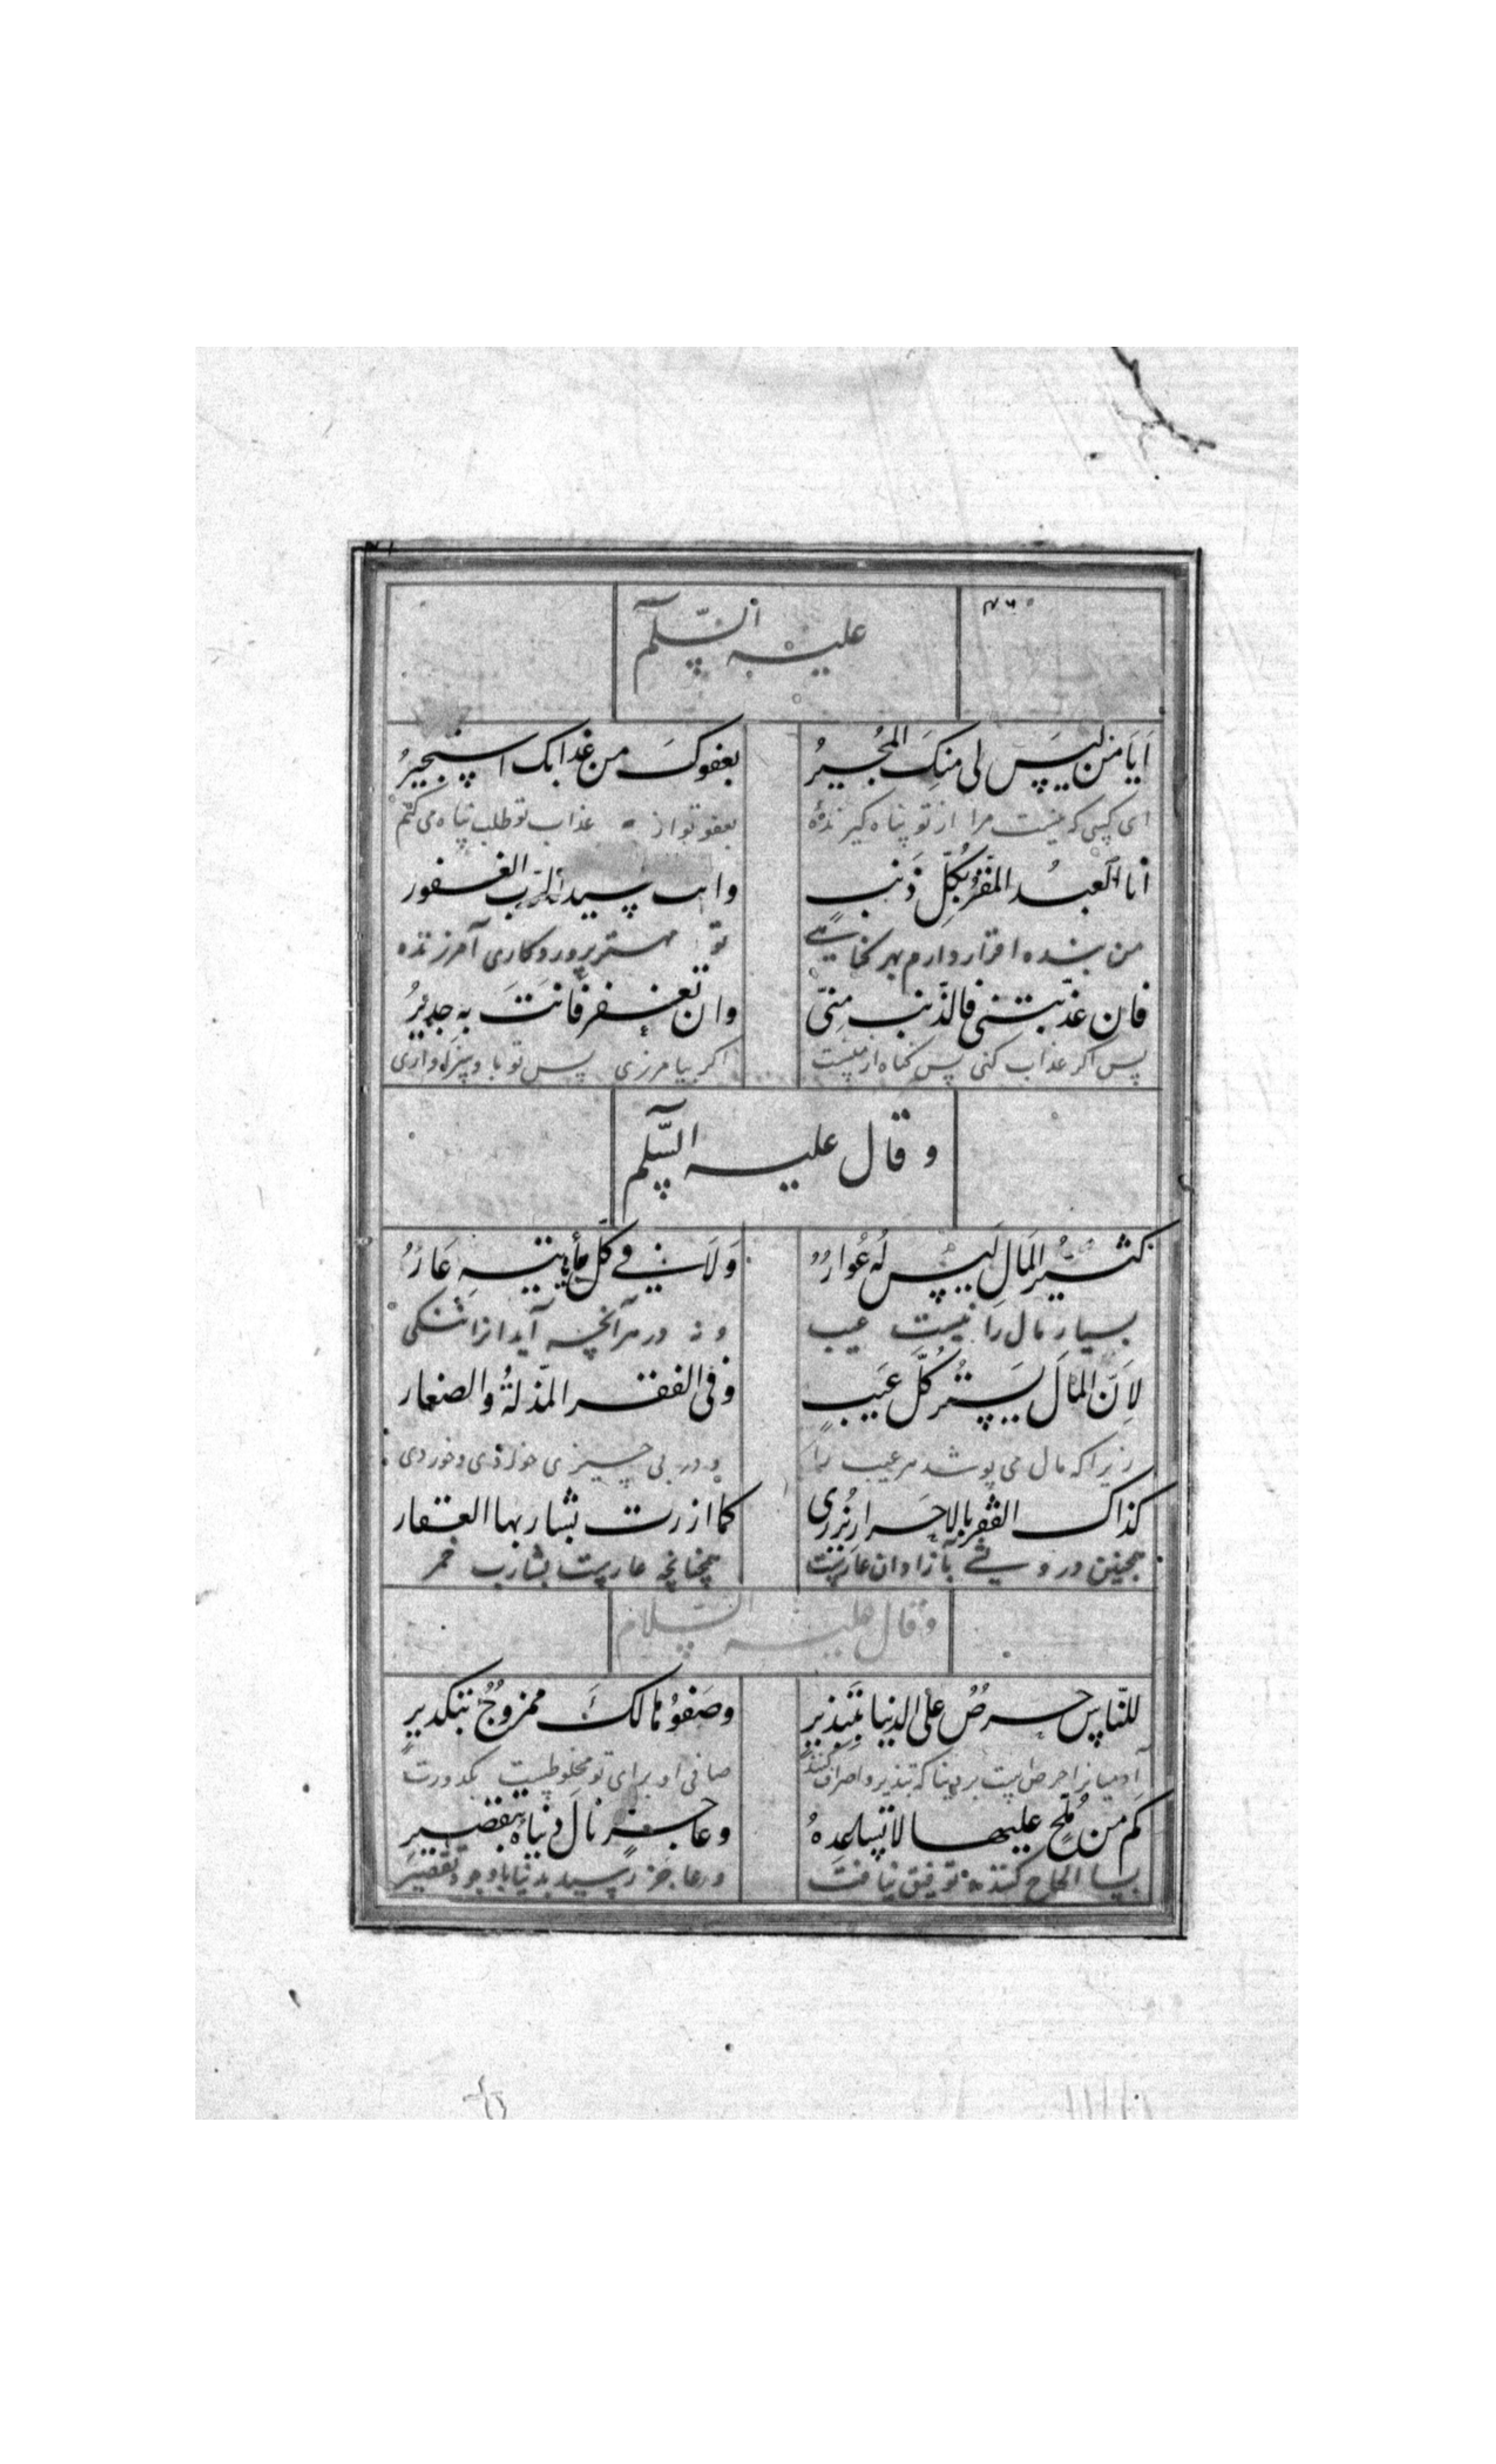 عليه السلم
اَيَا مَن لَيسَ لى مِنكَ المُجيرُ بعفوكَ من عذابك استجيرُ
اى كسى كه نيست مرا از تو پناه كيرنده بعفو تو از عذاب تو طلب پناه مى كنم
انا العبدُ المقرّ بكُلِّ ذَنبٍ وانت سيد الرّب الغفور
من بنده اقرار دارم بهر كناهى تو مهتر پروردكارى آمرزنده
فان عذّبتنى فالذّنب مِنّى وان تغفر فانتَ به جديرُ
پس اكر عذاب كنى پس كناه از منست اكر بيامرزى پس تو با و سزاوارى
و قال عليه السّلم
كثيرُ المَالِ لَيسَ لَه عُوارُ وَلَا فى كلّ ما ياتيهِ عَارُ
بسيار مال را نيست عيب و نه در هر آنچه آيد انرا ننكى
لِاَنّ المَالَ يَستُرُ كلَّ عَيبٍ وَفى الفقر المذلةُ والصغار
زيراكه مال مى پوشد هر عيب را و در بى چيزى خوارى و خوردى
كذاك الفقر بالاحرار يُزرى كما ازرت بشاربها العقار
همچنين درويشى بآزادان عارست همچنانچه عارست بشارب خمر
و قال عليه السلام
للنّاسِ حرصٌ على الدنيا بتبذيرِ وصَفوُها لكَ ممزوجٌ بتكديرِ
آدميانرا حرص است بر دنيا كه تبذير و اصراف كنند صافى او براى تو مخلوطست بكدورت
كَم من مُلحّ عليها لا تساعِدهُ وعاجزٍ نالَ دنياهُ بتقصيرِ
بسا الحاح كننده توفيق نيافت و عاجز رسيد بدنيا با وجود تقصير